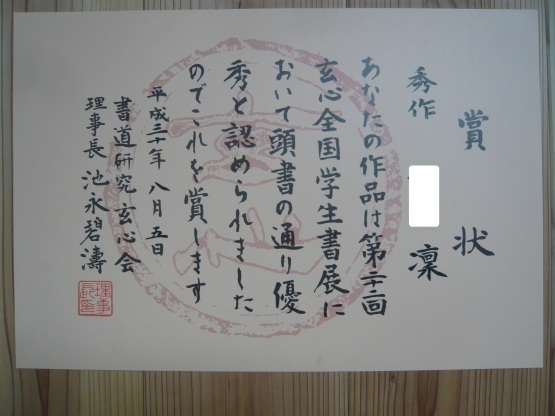 賞状
秀作
凜
あなたの作品は第二十二回
玄心全国学生書展に
おいて頭書の通り優
秀と認められました
のでこれを賞します
平成三十年八月五日
書道研究玄心会
理事長 池永碧濤